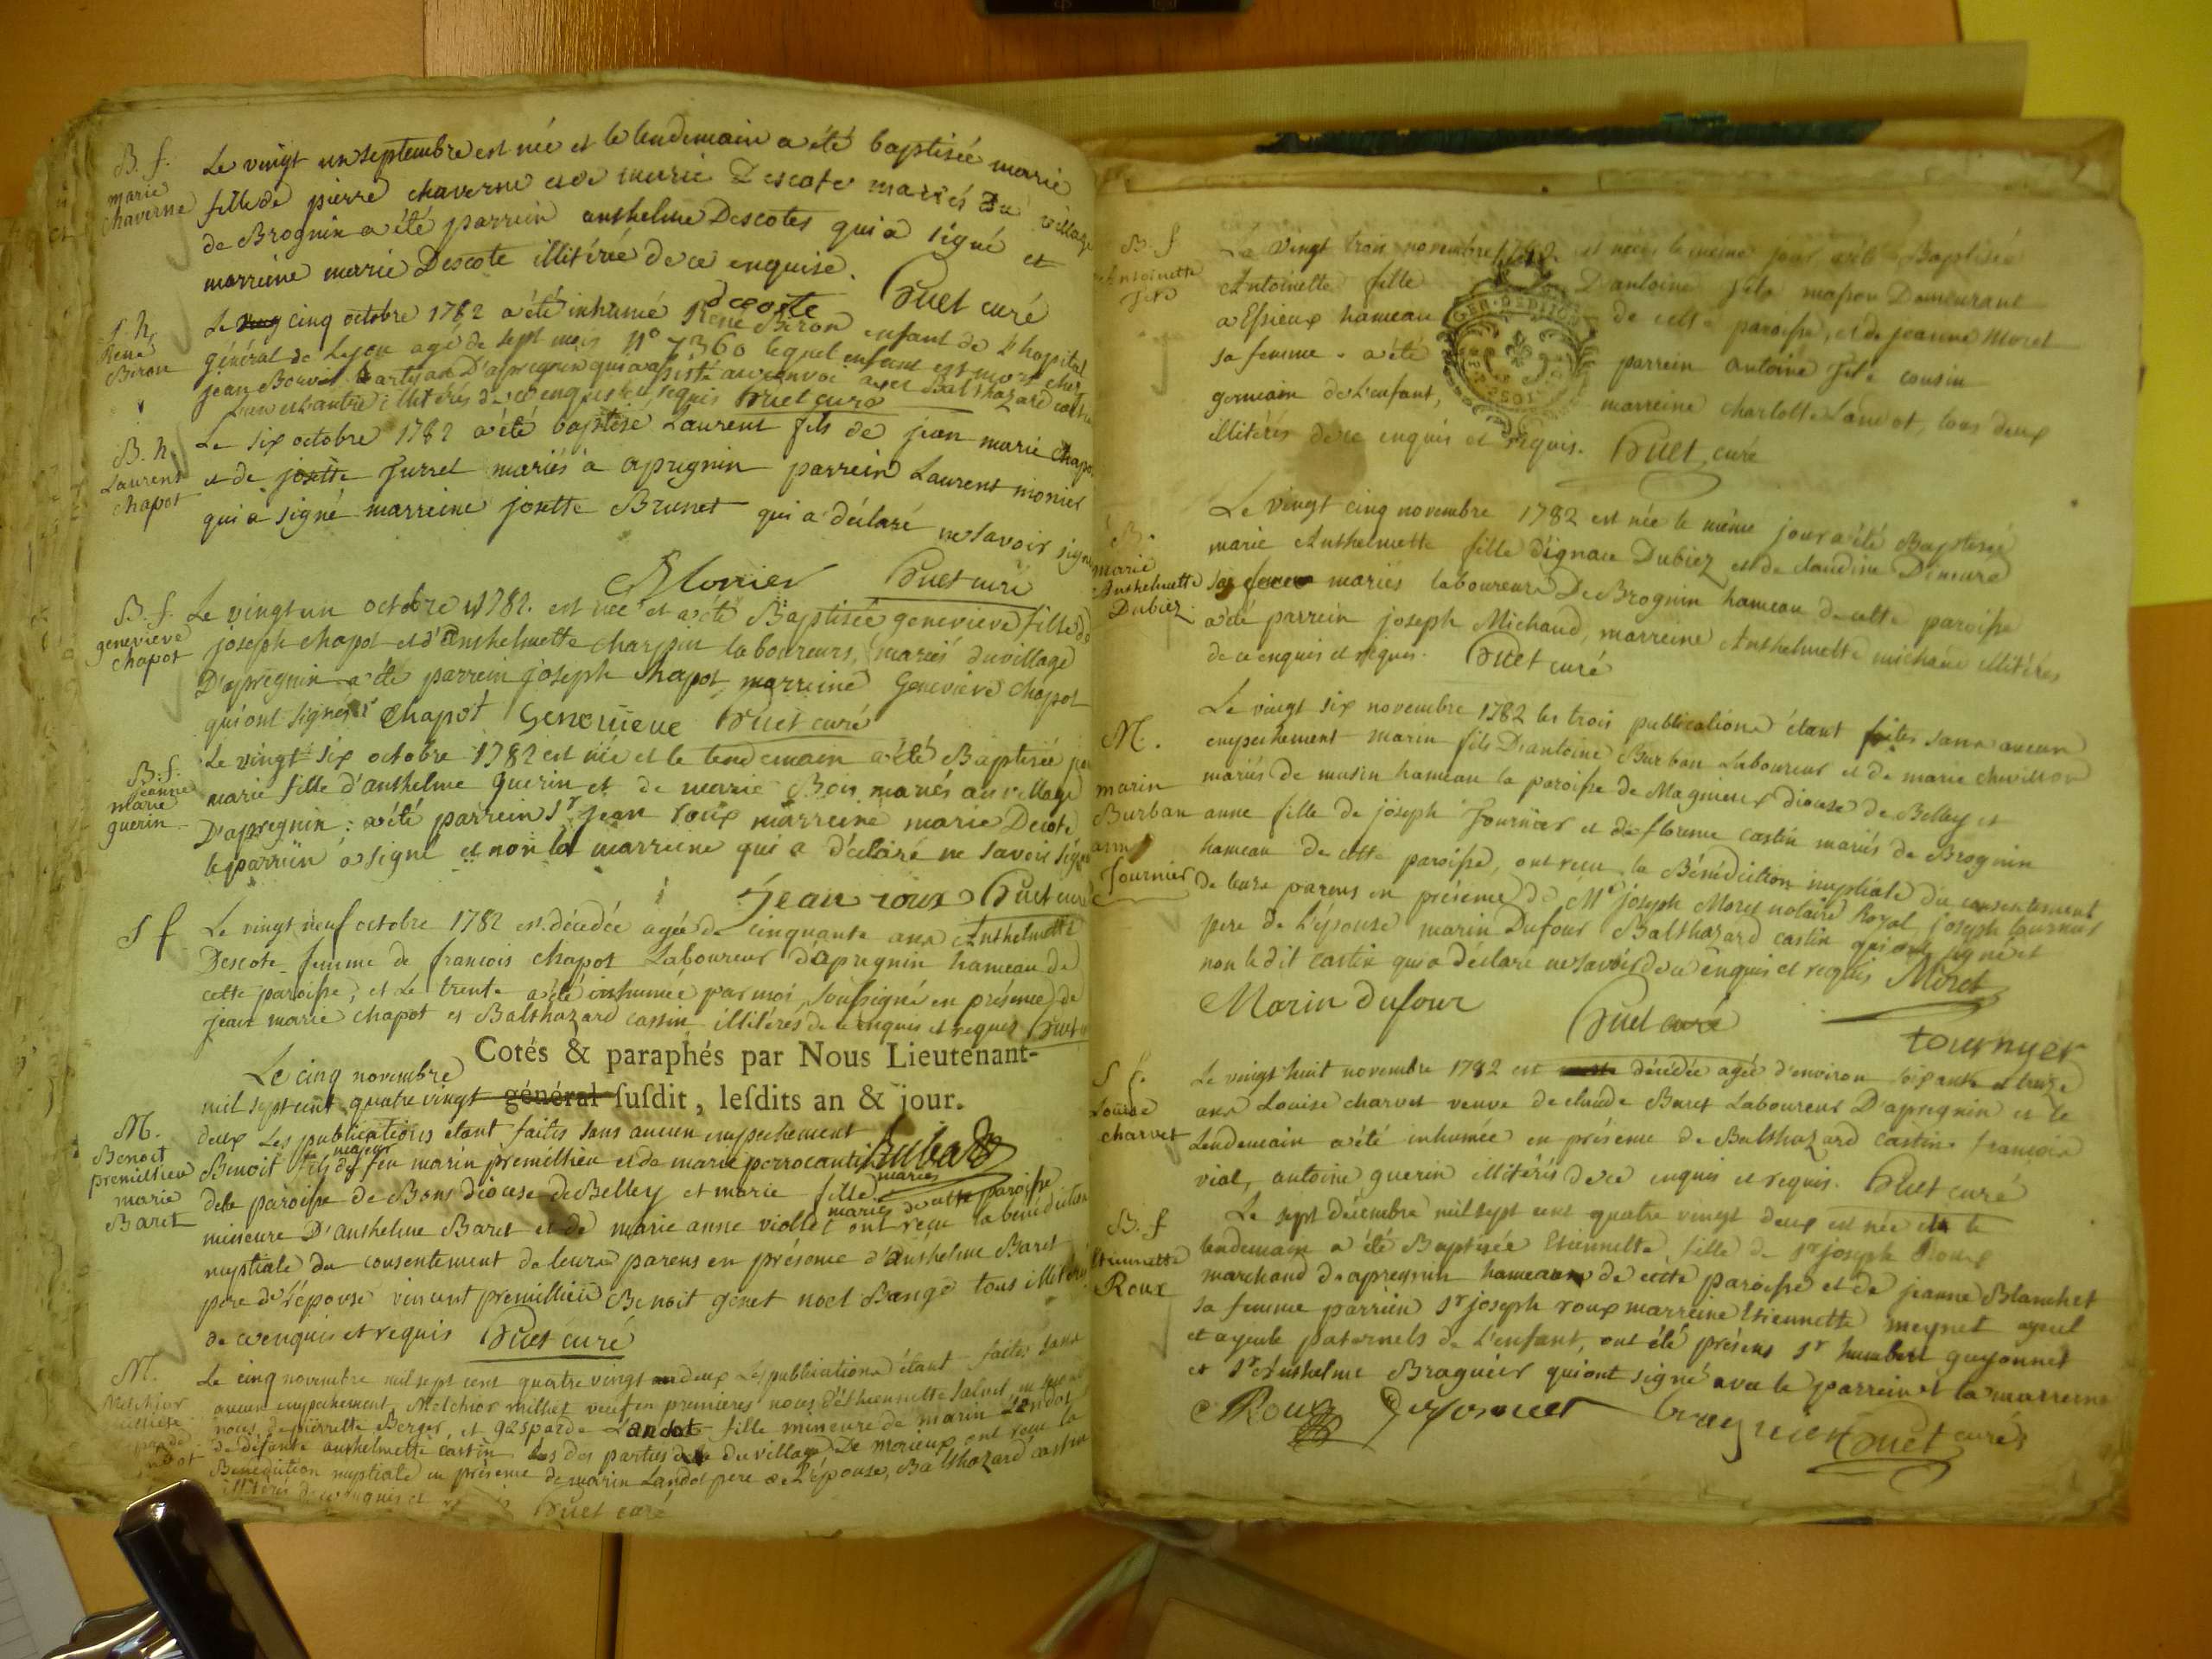 B. f.
marie
chaverne
Le vingt un septembre est née et le lendemain a été baptisée marie
fille de pierre chaverne et de marie Descote mariés du village
de Brognin a été parrein anthelme Descotes qui a signé et
marreine marie Descote illitérée de ce enquise.
descote Huet curé
S. h.
René
Biron
Le cinq octobre 1782 a été inhumé René Biron enfant de l'hopital
général de Lyon agé de sept mois n° 7360 lequel enfant est mort chez
jean Borvet artisan D'apregnin qui a assisté au convoi avec Balthazard castin
l'un et l'autre illitérés de ce enquis et requis Huet curé
B. h.
Laurent
chapot
Le six octobre 1782 a été baptisé Laurent fils de jean marie chapot
et de josette Jurret mariés à apregnin parrein Laurent monier
qui a signé marreine josette Brunet qui a déclaré ne savoir signer
Monier Huet curé
B. f.
genevieve
chapot
Le vingt un octobre 1782. est née et a été Baptisée genevieve fille de
joseph chapot et d'anthelmette charpin laboureurs, mariés du village
D'apregnin a été parrein joseph chapot marreine Genevieve chapot
qui ont signés chapot Genevieve Huet curé
B. f.
jeanne
marie
guerin
Le vingt six octobre 1782 est née et le lendemain a été Baptisée
marie fille d'anthelme guerin et de marie Bois mariés au village
D'apregnin : a été parrein Sr jean roux marreine marie Decote
le parrein a signé et non la marreine qui a déclaré ne savoir signer
jean roux Huet curé
S f
Le vingt neuf octobre 1782 est décédée agée de cinquante ans Anthelmette
Descote femme de francois chapot Laboureur d'apregnin hameau de
cette paroisse, et Le trente a été inhumée par moi soussigné en présence de
jean marie chapot et Balthazard castin illitérés de ce enquis et requis Huet
Cotés & paraphés par Nous Lieutenant-
général ſuſdit, leſdits an & jour.
M.
Benoit
premillieu
marie
Baret
Le cinq novembre
mil sept cent quatre vingt
deux Les publications étant faites sans aucun empechement
Benoit fils majeur de feu marin premillieu et de marie perrocantin
de la paroisse de Bons diocèse de Belley et marie fille
mineure D'anthelme Baret et de marie anne violet mariés de cette paroisse ont reçu la bénédiction
nuptiale du consentement de leurs parens en présence d'anthelme Baret
pere de l'épouse vincent premillieu Benoit genet noel Bange tous illitérés
de ce enquis et requis Huet curé
M.
Melchior
Le cinq novembre mil sept cent quatre vingt deux Les publications étant faites sans
aucun empechement Melchior milhet veuf en premières noces d'éthiennette Salvet
noces de pierrette Berger, et gasparde Landot fille mineure de marin Landot
de défunte anthelmette castin les des parties du village De morieux ont reçu la
Bénédiction nuptiale en présence de marin Landot pere de l'épouse, Balthazard castin
illitérés de ce enquis et
Huet curé
B. f
Antoinette
Le vingt trois novembre 1782 est née et le même jour a été Baptisée
Antoinette fille D'antoine maçon Demeurant
a Essieux hameau de cette paroisse, et de jeanne Moret
sa femme. a été parrein antoine cousin
germain de l'enfant, marreine charlotte Landot, tous deux
illitérés de ce enquis et requis. Huet curé
B.
marie
Anthelmette
Dubiez
Le vingt cinq novembre 1782 est née le même jour a été Baptisée
marie Anthelmette fille d'ignace Dubiez et de claudine Dimure
mariés laboureurs De Brognin hameau de cette paroisse
a été parrein joseph Michaud, marreine Anthelmette michaud illitérés
de ce enquis et requis. Huet curé
M.
marin
Burban
anne
fournier
Le vingt six novembre 1782 les trois publications étant faites sans aucun
empechement marin fils D'antoine Burban Laboureur et de marie chevillon
mariés de musin hameau la paroisse de Magnieux diocèse de Belley et
anne fille de joseph fournier et de florence castin mariés de Brognin
hameau de cette paroisse, ont reçu la Bénédiction nuptiale du consentement
de leurs parens en présence de Me joseph Moret notaire Royal joseph tournier
pere de l'épouse marin Dufour Balthazard castin qui ont signé et
non le dit castin qui a déclaré ne savoir de ce enquis et requis Moret
Marin dufour Huet curé
tournyer
S f.
Louise
charvet
Le vingt huit novembre 1782 est décédée agée d'environ soixante et treize
ans Louise charvet veuve de claude Baret Laboureur D'apregnin et le
Lendemain a été inhumée en présence de Balthazard Castin francois
vial, antoine guerin illitérés de ce enquis et requis. Huet curé
B. f
Etiennette
Roux
Le sept décembre mil sept cent quatre vingt deux est née et le
lendemain a été Baptisée Etiennette fille de Sr joseph Roux
marchand D'apregnin hameau de cette paroisse et de jeanne Blanchet
sa femme parrein Sr joseph roux marreine Etiennette meynet ayeul
et ayeule paternels de l'enfant, ont été présens Sr humbert guyonnet
et Sr Anthelme Braguier qui ont signé avec le parrein et la marreine
Roux Guyonnet braguier Huet curé